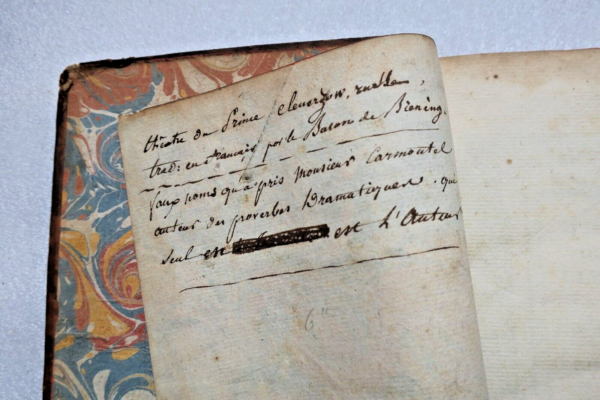 théatre du Prince Clenerzow, russe,
trad: en français par le Baron de Blening.
faux noms qu'a pris Monsieur Carmontel
auteur des proverbes Dramatiques. qui
seul est est L'Auteur
6"